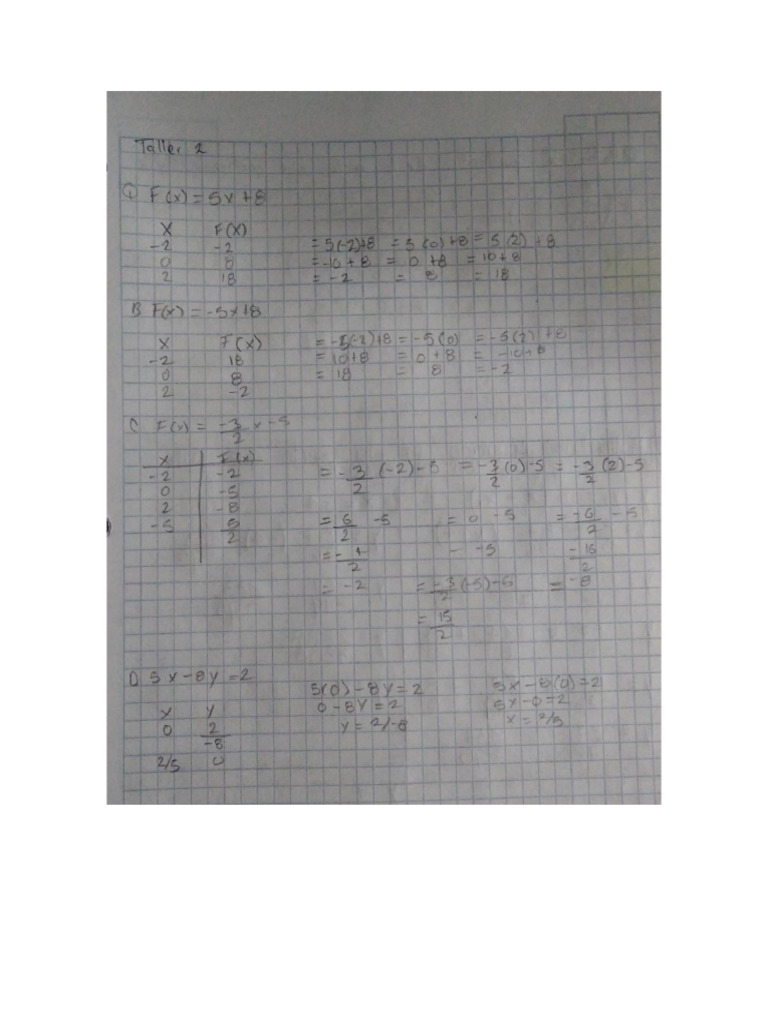 Taller 2
a) F(x) = 5x+8
X F(X)
-2 -2 = 5(-2)+8 = 5(0)+8 = 5(2)+8
0 8 = -10+8 = 0+8 = 10+8
2 18 = -2 = 8 = 18
B F(x) = -5x+8
X F(X) = -5(-2)+8 = -5(0) = -5(2)+8
-2 18 = 10+8 = 0+8 = -10+8
0 8 = 18 = 8 = -2
2 -2
C F(x) = -3/2 x -5
X F(x)
-2 -2 = -3/2 (-2) -5 = -3/2 (0) -5 = -3/2 (2) -5
0 -5
2 -8
-5 5/2 = 6/2 -5 = 0 -5 = -6/2 -5
= -4/2 - -5 -16/2
= -2 = -3/2 (-5) -5 = -8
= 15/2
D 5x-8y=2 5(0)-8y=2 5x-8(0)=2
X Y 0-8y=2 5x-0=2
0 2/-8 y=2/-8 x=2/5
2/5 0